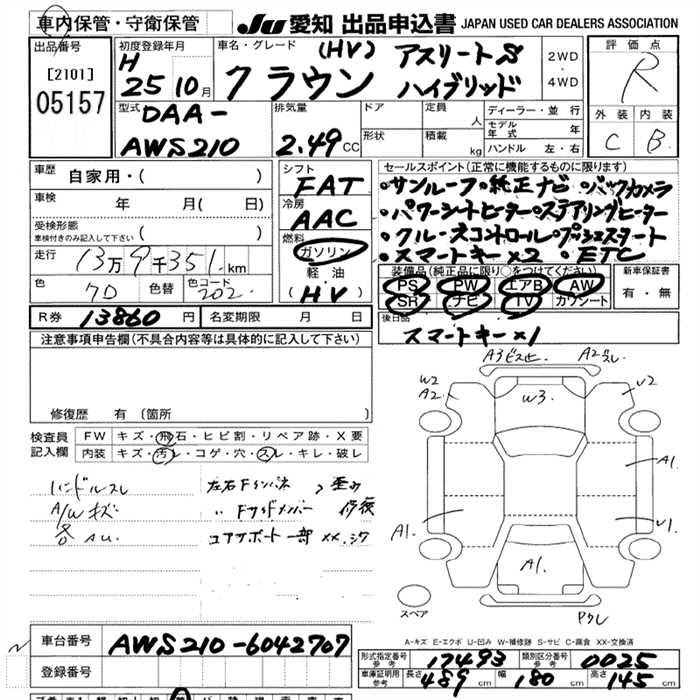 車内保管・守衛保管
JU 愛知 出品申込書 JAPAN USED CAR DEALERS ASSOCIATION
出品番号
[2101]
05157
初度登録年月
H
25 10月
車名・グレード
(HV) アスリートS
クラウン ハイブリッド
2WD
・
4WD
評価点
R
外装 内装
C B
型式
DAA-
AWS210
排気量
2.49 CC
ドア
形状
定員
人
積載
kg
ディーラー・並行
モデル年式 年
ハンドル 左・右
車歴
自家用・( )
車検 年 月( 日)
受検形態
車検付きのみ記入して下さい ( )
走行 13万9千351km
色 7D 色替 色コード 202
シフト
FAT
冷房
AAC
燃料
ガソリン
軽油
(HV)
セールスポイント(正常に機能するものに限ります)
・サンルーフ・純正ナビ・バックカメラ
・パワーシートヒーター・ステアリングヒーター
・クルーズコントロール・プッシュスタート
・スマートキー×2 ・ETC
装備品(純正品に限り○をつけてください)
PS PW エアB AW
SR ナビ TV カワシート
新車保証書
有・無
R券 13860円 名変期限 月 日
後日品
スマートキー×1
注意事項申告欄(不具合内容等は具体的に記入して下さい)
修復歴 有 (箇所
検査員記入欄
FW キズ・飛石・ヒビ割・リペア跡・X要
内装 キズ・汚レ・コゲ・穴・スレ・キレ・破レ
ハンドルスレ
A/Wキズ
各AU.
左右Fインパネ 歪み
〃 Fサイドメンバー 修復
コアサポート一部XX.シワ
A3ビスヒ A2スレ
W2
A2
W3
V2
A1.
A1.
V1
A1.
スペア
A-キズ E-エクボ U-凹み W-補修跡 S-サビ C-腐食 XX-交換済
車台番号 AWS210-6042707
登録番号
形式指定番号 参考 17493 類別区分番号 参考 0025
車庫証明用 参考 長さ 489cm 幅 180cm 高さ 145cm